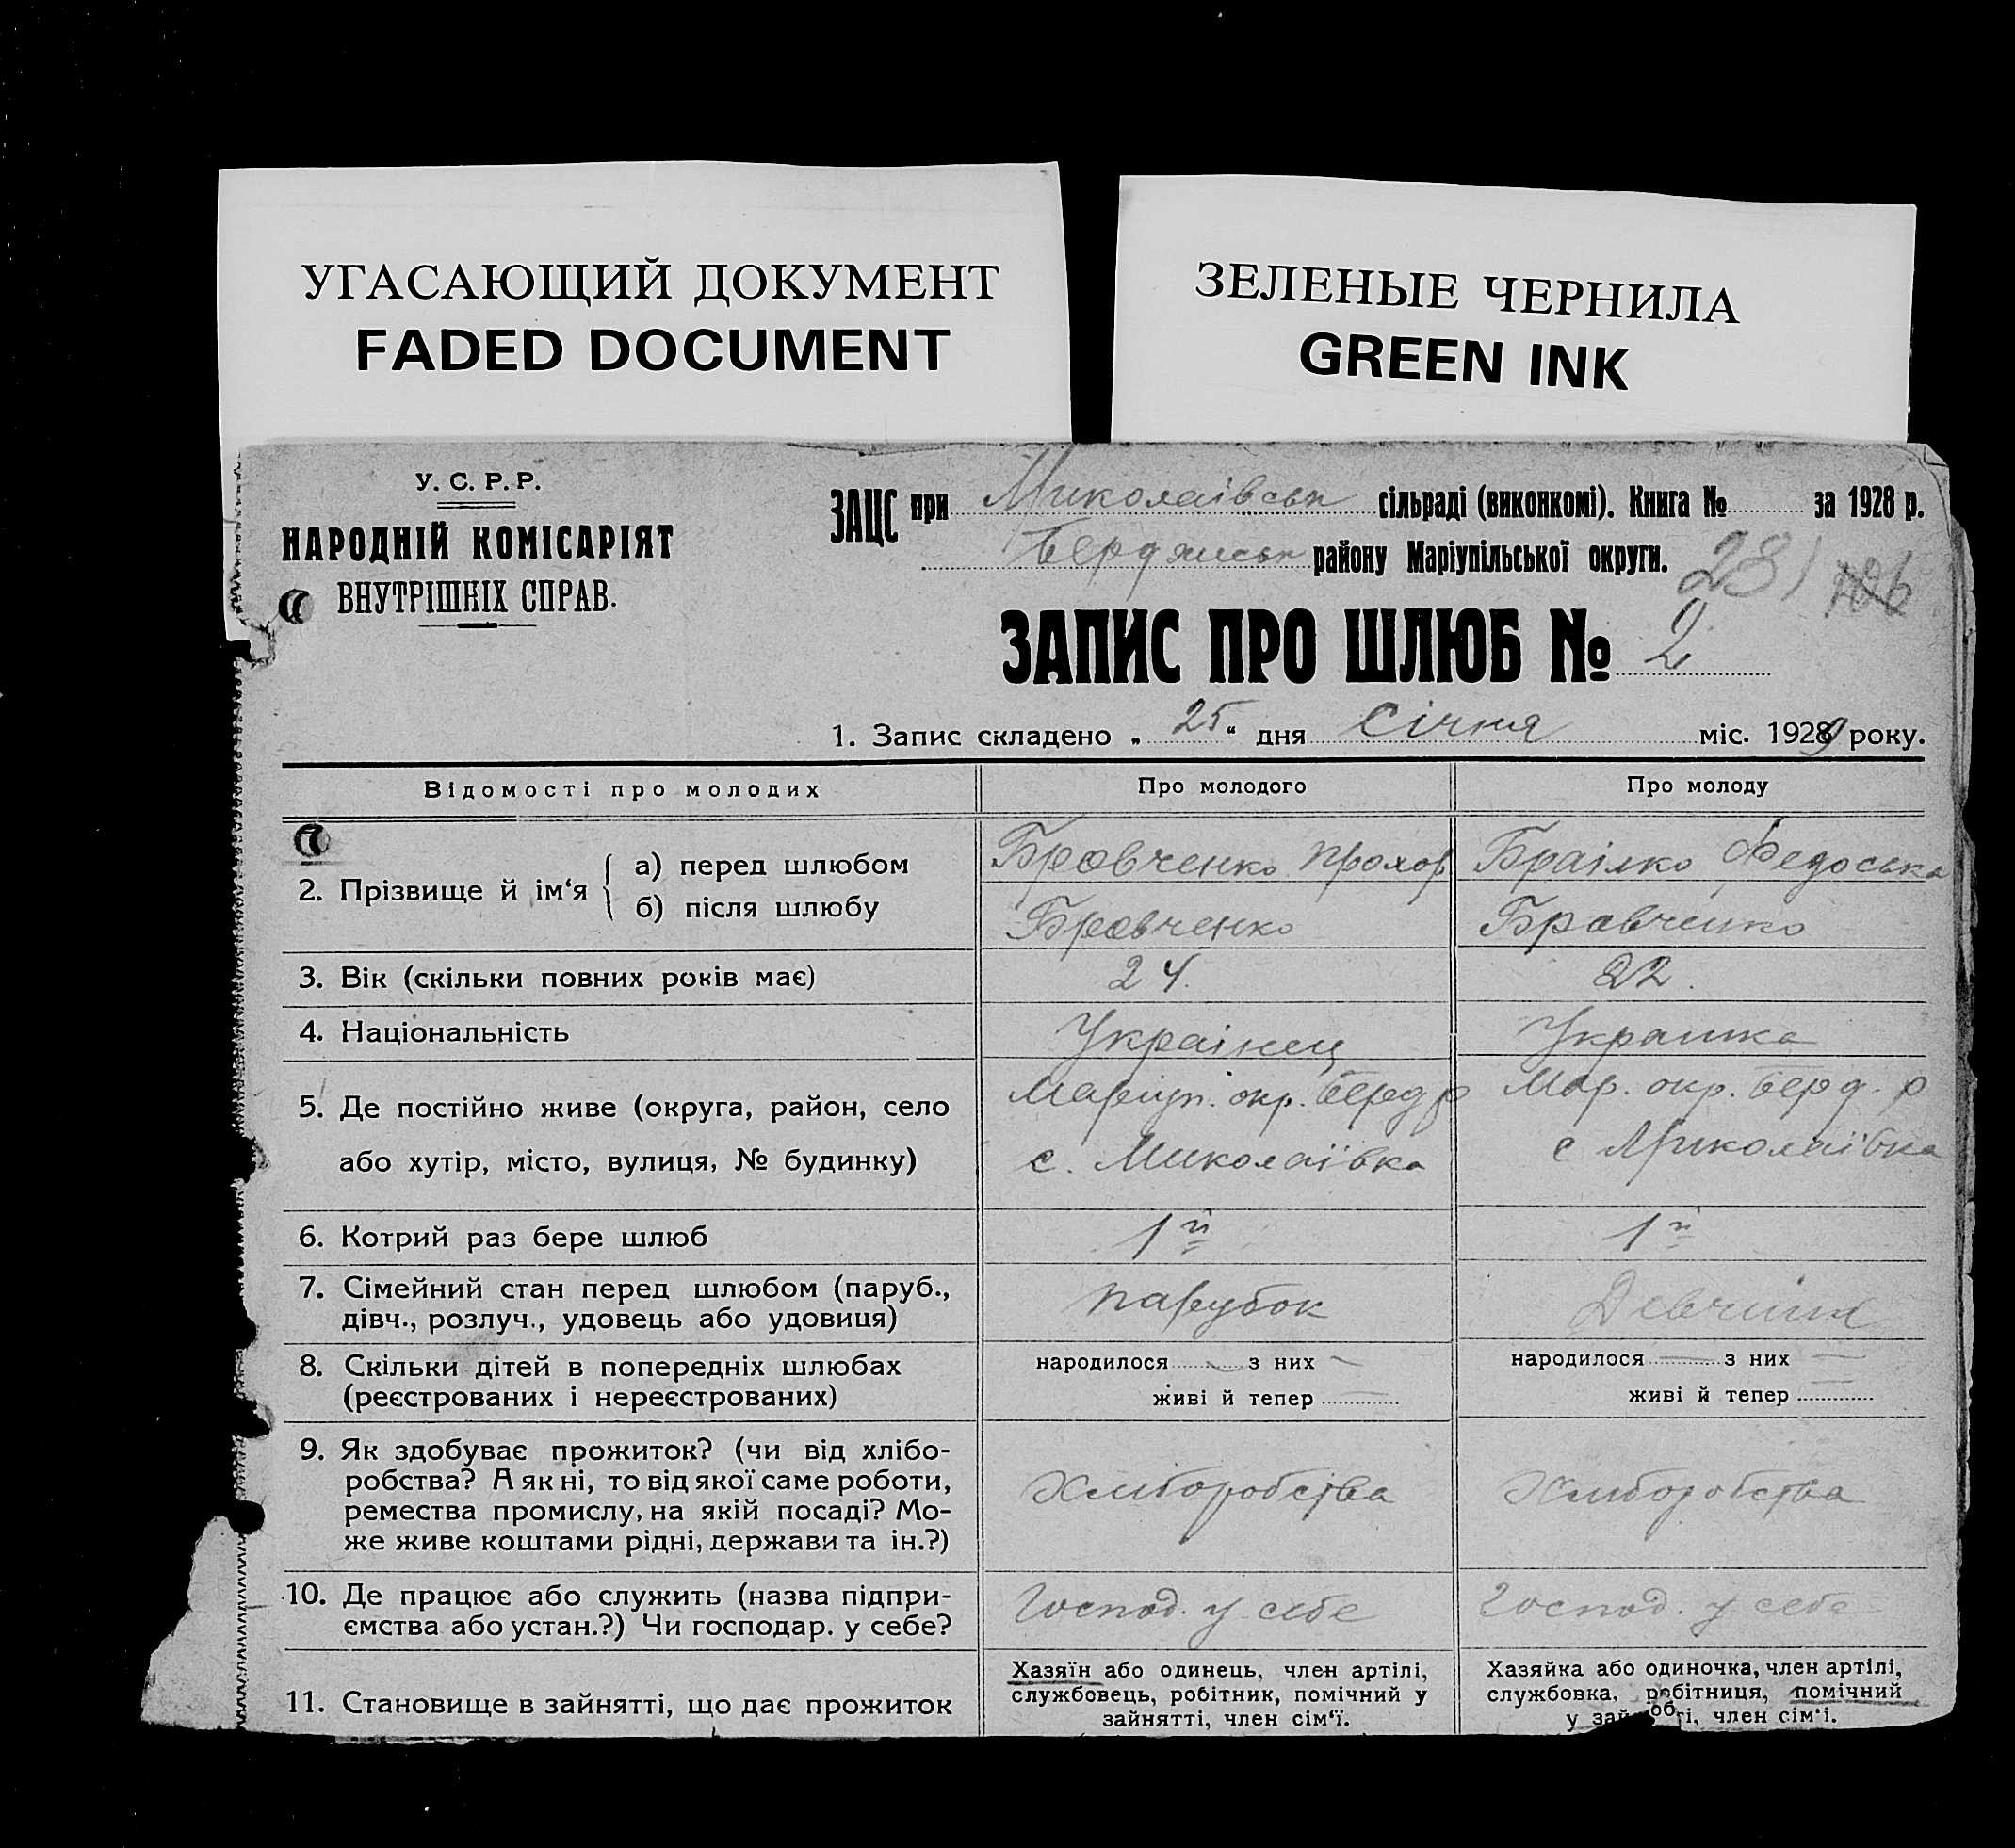 УГАСАЮЩИЙ ДОКУМЕНТ
FADED DOCUMENT
ЗЕЛЕНЫЕ ЧЕРНИЛА
GREEN INK
У. С. Р. Р.
НАРОДНІЙ КОМІСАРІЯТ
ВНУТРІШНІХ СПРАВ.
ЗАЦС при Миколаівськ сільраді (виконкомі). Книга № за 1928 р.
Бердянськ району Маріупільської округи.
281 126
ЗАПИС ПРО ШЛЮБ № 2
1. Запис складено „ 25 “ дня Січня міс. 1929 року.
Відомості про молодих Про молодого Про молоду
2. Прізвище й ім‘я
а) перед шлюбом Бровченко Прохор Браілко Федоська
б) після шлюбу Бровченко Бравченко
3. Вік (скільки повних років має) 24. 22.
4. Національність Украінец Украинка
5. Де постійно живе (округа, район, село Маріуп. окр. Берд р Мар. окр. Берд. р
або хутір, місто, вулиця, № будинку) с. Миколаївка с Миколаївка
6. Котрий раз бере шлюб 1й 1й
7. Сімейний стан перед шлюбом (паруб., парубок Девчина
дівч., розлуч., удовець або удовиця)
8. Скільки дітей в попередніх шлюбах народилося — з них — народилося — з них —
(реєстрованих і нереєстрованих) живі й тепер — живі й тепер —
9. Як здобуває прожиток? (чи від хлібо-
робства? А як ні, то від якої саме роботи, Хліборобства Хліборобства
ремества промислу, на якій посаді? Мо-
же живе коштами рідні, держави та ін.?)
10. Де працює або служить (назва підпри- Господ. у себе Господ. у себе
ємства або устан.?) Чи господар. у себе?
11. Становище в зайнятті, що дає прожиток
Хазяїн або одинець, член артілі,
службовець, робітник, помічний у
зайнятті, член сім‘ї.
Хазяйка або одиночка, член артілі,
службовка, робітниця, помічний
у член сім‘ї.